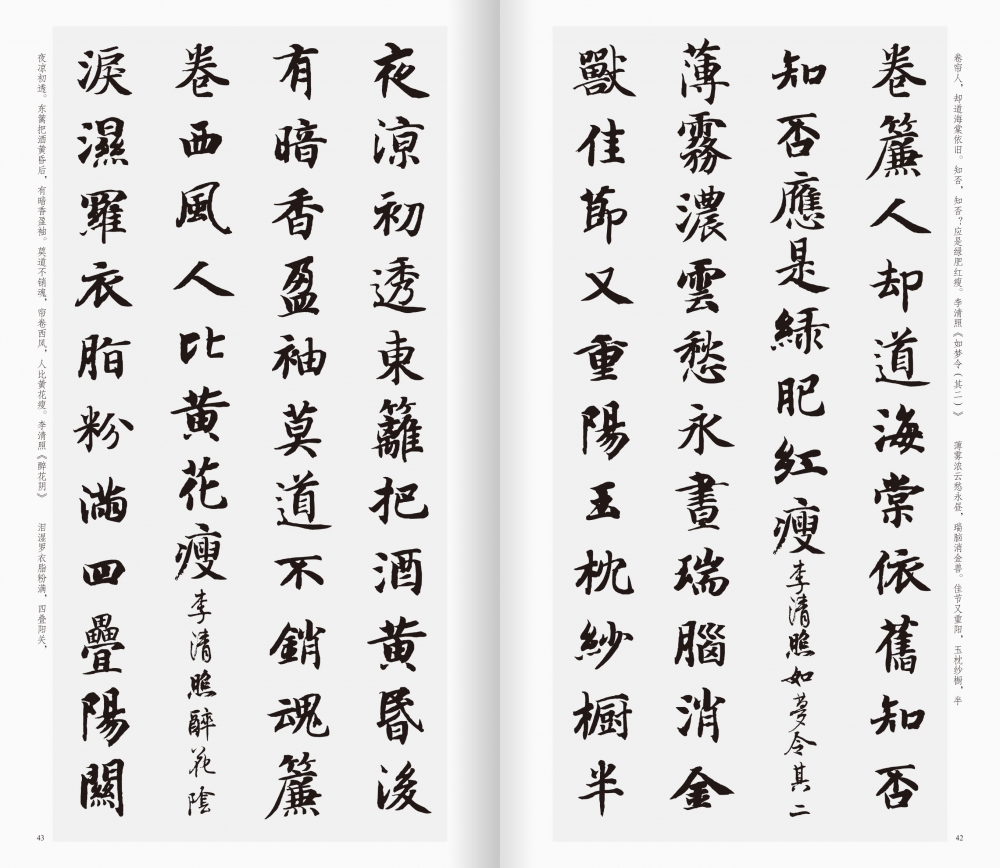 卷帘人，却道海棠依旧。知否，知否？应是绿肥红瘦。李清照《如梦令（其二）》 薄雾浓云愁永昼，瑞脑消金兽。佳节又重阳，玉枕纱橱，半
卷簾人却道海棠依舊知否
知否應是緑肥紅瘦李清照如夢令其二
薄霧濃雲愁永晝瑞腦消金
獸佳節又重陽玉枕紗橱半
42
夜涼初透東籬把酒黄昏後
有暗香盈袖莫道不銷魂簾
卷西風人比黄花瘦李清照醉花陰
淚濕羅衣脂粉滿四疊陽關
夜凉初透。东篱把酒黄昏后，有暗香盈袖。莫道不销魂，帘卷西风，人比黄花瘦。李清照《醉花阴》 泪湿罗衣脂粉满，四叠阳关，
43